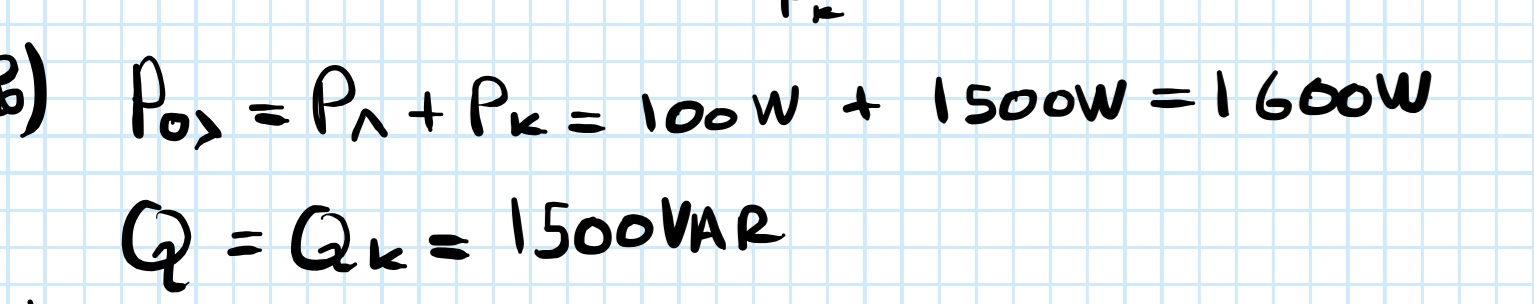 β) Pολ = PΛ + Pκ = 100W + 1500W = 1600W
Q = Qκ = 1500VAR